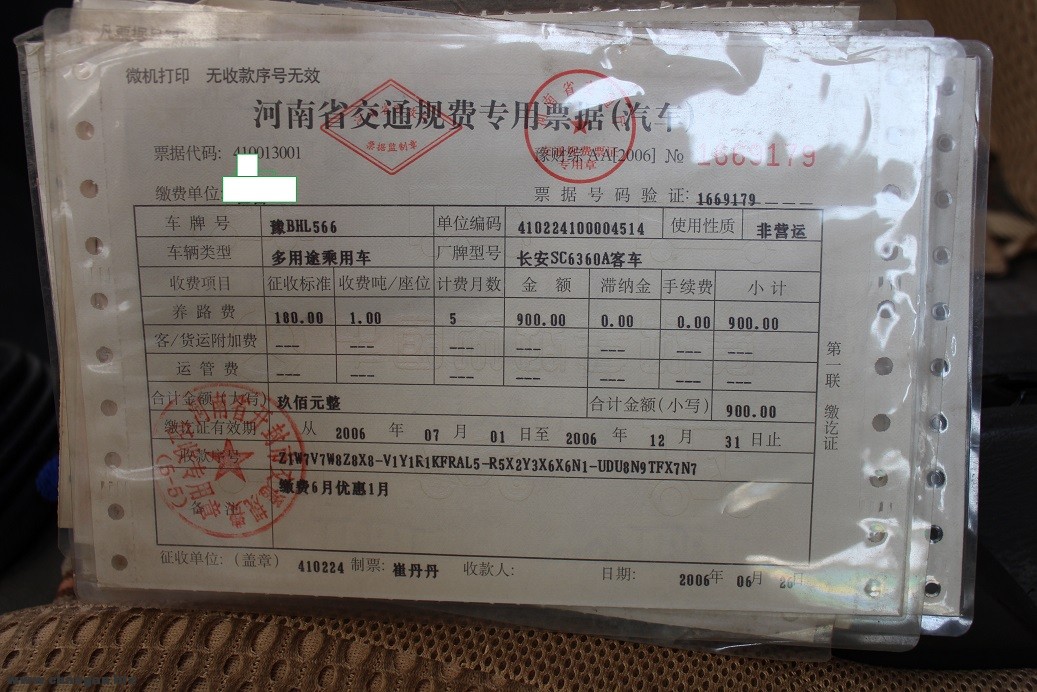 微机打印 无收款序号无效
河南省交通规费专用票据(汽车)
票据监制章
专用章
票据代码: 410013001
豫财综 AA[2006] № 1669179
缴费单位:
票据号码验证: 1669179
车牌号 豫BHL566 单位编码 410224100004514 使用性质 非营运
车辆类型 多用途乘用车 厂牌型号 长安SC6360A客车
收费项目 征收标准 收费吨/座位 计费月数 金额 滞纳金 手续费 小计
养路费 180.00 1.00 5 900.00 0.00 0.00 900.00
客/货运附加费 --- --- --- --- --- --- ---
运管费 --- --- --- --- --- --- ---
合计金额(大写) 玖佰元整 合计金额(小写) 900.00
缴讫证有效期 从 2006 年 07 月 01 日至 2006 年 12 月 31 日止
收款序号 Z1W7V7W8Z8X8-V1Y1R1KFRAL5-R5X2Y3X6X6N1-UDU8N9TFX7N7
备注 缴费6月优惠1月
第一联 缴讫证
征收单位:(盖章) 410224 制票: 崔丹丹 收款人: 日期: 2006年 06月 26日